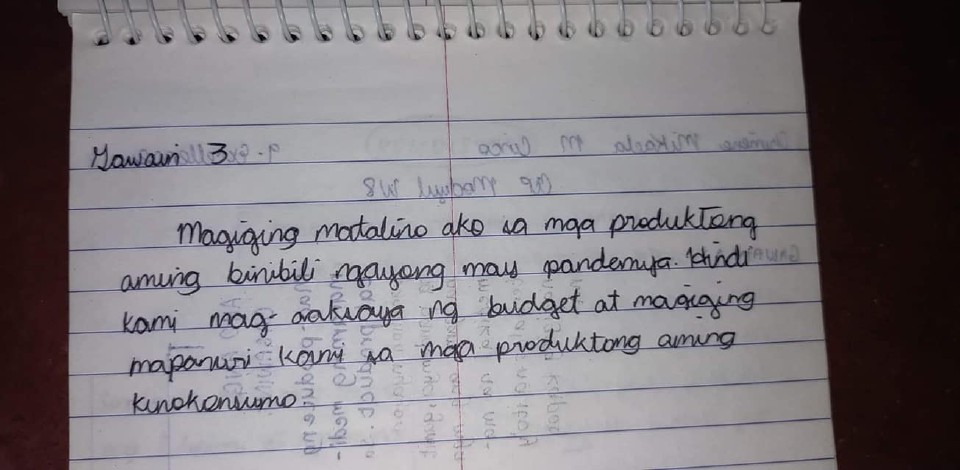 Gawain 3
Magiging matalino ako sa mga produktong
aming binibili ngayong may pandemya. Hindi
kami mag-aaksaya ng budget at magiging
mapanuri kami sa mga produktong aming
kinokonsumo